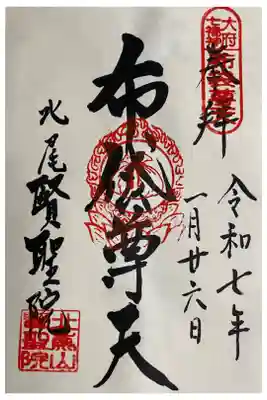 大府
七福神
奉拝
令和七年
一月廿六日
布袋尊天
北尾賢聖院